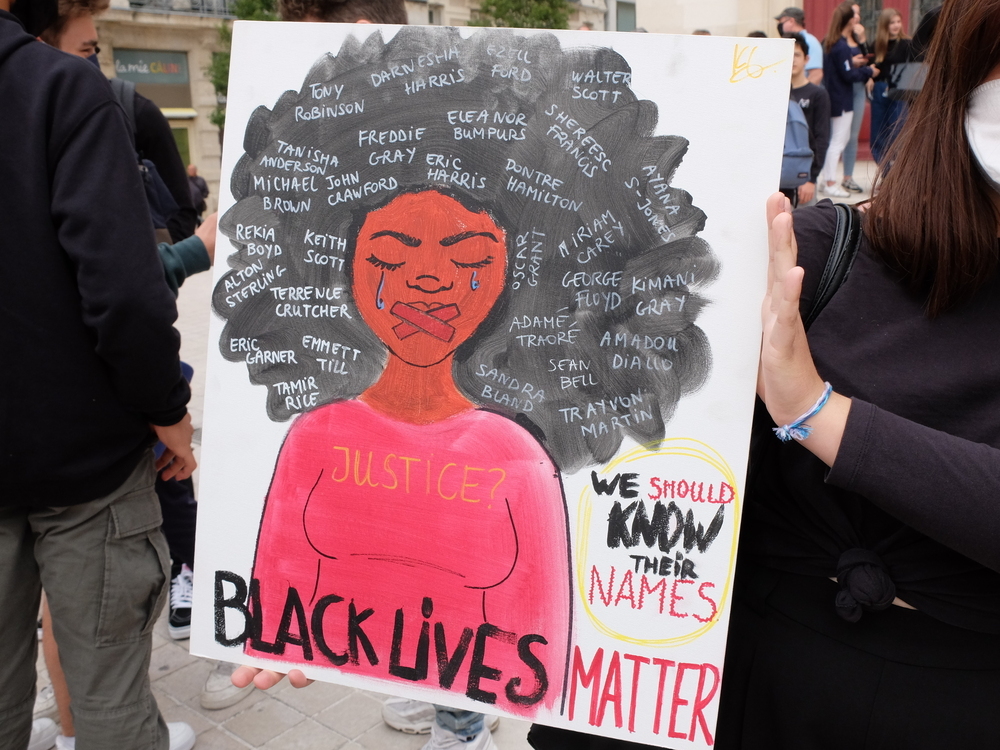 la mie Câline
TONY
ROBINSON
DARNESHA
HARRIS
EZELL
FORD
WALTER
SCOTT
FREDDIE
GRAY
ELEANOR
BUMPURS
SHEREESE
FRANCIS
TANISHA
ANDERSON
MICHAEL
BROWN
JOHN
CRAWFORD
ERIC
HARRIS
DONTRE
HAMILTON
AIYANA
S-JONES
REKIA
BOYD
KEITH
SCOTT
OSCAR
GRANT
MIRIAM
CAREY
ALTON
STERLING
TERRENCE
CRUTCHER
GEORGE
FLOYD
KIMANI
GRAY
ERIC
GARNER
EMMETT
TILL
ADAMÉ
TRAORÉ
AMADOU
DIALLO
TAMIR
RICE
SEAN
BELL
SANDRA
BLAND
TRAYVON
MARTIN
JUSTICE?
WE SHOULD
KNOW
THEIR
NAMES
BLACK LIVES
MATTER